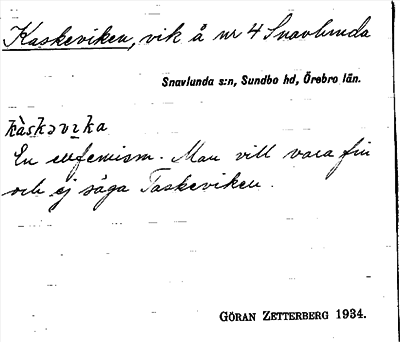 Kaskeviken, vik å nr 4 Snavlunda
Snavlunda s:n, Sundbo hd, Örebro län.
kàskəvɪka
En eufemism. Man vill vara fin
och ej säga Taskeviken.
GÖRAN ZETTERBERG 1934.